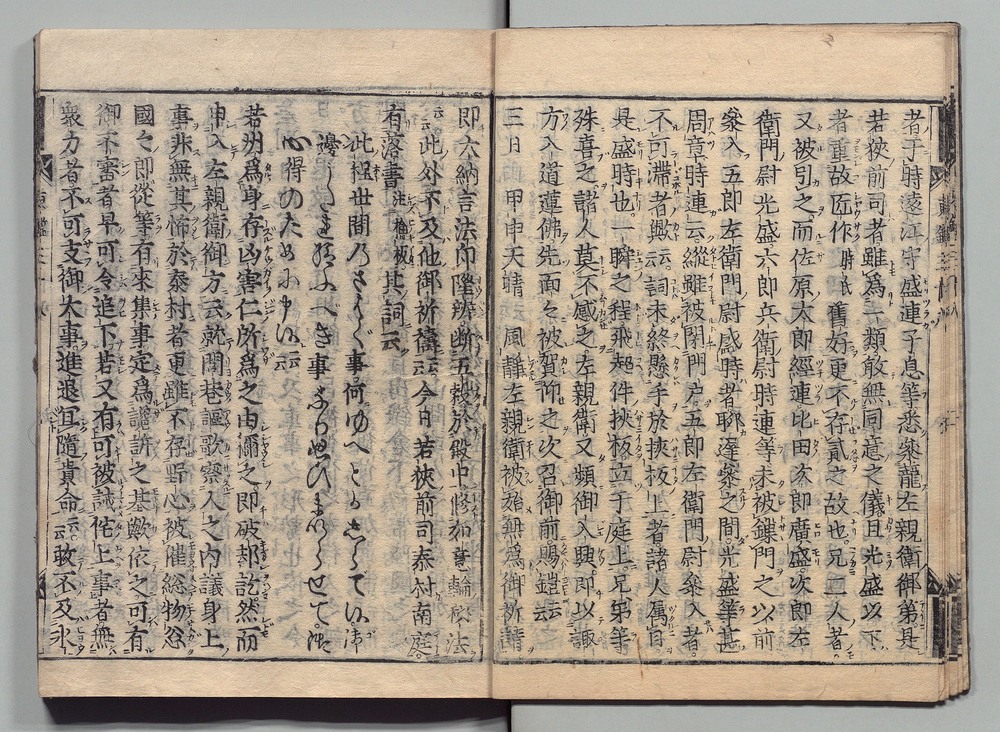 者于時遠江守盛連子息等悉參籠左親衛御第是
若狹前司者雖爲一類敢無同意之儀且光盛以下
者重故匠作時氏舊好更不存貳之故也兄二人者
又被引之而佐原太郎經連比田次郎廣盛次郎左
衛門尉光盛六郎兵衛尉時連等未被鏁門之以前
參入五郎左衛門尉盛時者聊遲參之間光盛等甚
周章時連云縱雖被閇門戸五郎左衛門尉參入者
不可滯者歟云云詞未終懸手於挾板上者諸人属目
是盛時也一瞬之程飛越件挾板立于庭上兄弟等
殊喜之諸人莫不感之左親衛又頻御入興即以諏
方入道蓮佛先面々被賀仰之次召御前賜鎧云云
三日 甲申天晴 風靜左親衛被始無爲御祈請
即大納言法印隆辨斷五穀於殿中修如意輪秘法
云云此外不及他御祈禱云云今日若狹前司泰村南庭
有落書注檜板其詞云
此程世間のさはく事何ゆへとかしらて候御
邊うたれ給ふへき事なり思ひまいらせて御
心得のために申候云云
若州爲身存凶害仁所爲之由稱之即破却訖然而
申入左親衛御方云就閭巷謳歌察人之内議身上
事非無其怖於泰村者更雖不存野心被催総物忩
國之郎從等有來集事定爲讒訴之基歟依之可有
御不審者早可令追下若又有可被誡佗上事者無
衆力者不可支御大事進退宜隨貴命云云敢不及水